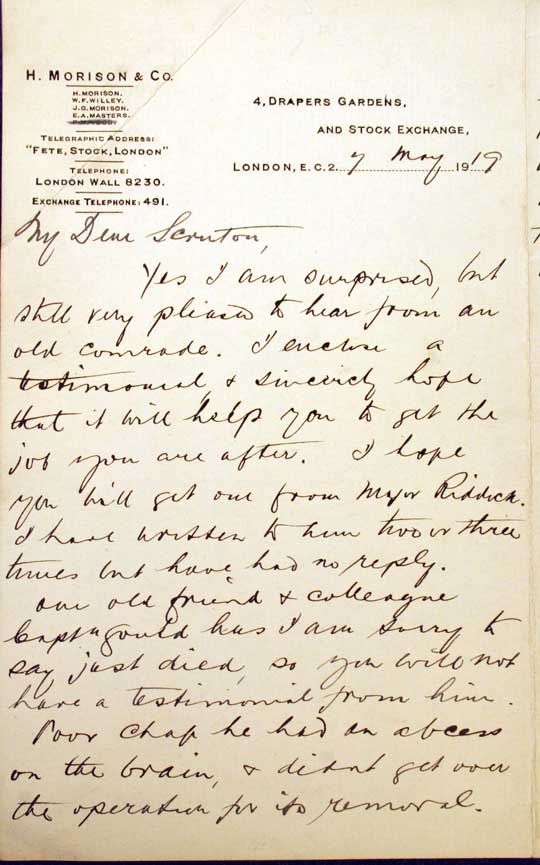 H. MORISON & CO.
H. MORISON.
W. F. WILLEY.
J. G. MORISON.
E. A. MASTERS.
TELEGRAPHIC ADDRESS:
"FETE, STOCK, LONDON"
TELEPHONE:
LONDON WALL 8230.
EXCHANGE TELEPHONE: 491.
4, DRAPERS GARDENS,
AND STOCK EXCHANGE,
LONDON, E.C.2. 7 May 1919
My Dear Scruton,
Yes I am surprised, but
still very pleased to hear from an
old comrade. I enclose a
testimonial, & sincerely hope
that it will help you to get the
job you are after. I hope
you will get one from Major Riddick.
I have written to him two or three
times but have had no reply.
Our old friend & colleague
Captn Gould has I am sorry to
say just died, so you will not
have a testimonial from him.
Poor chap he had an abcess
on the brain, & didnt get over
the operation for its removal.